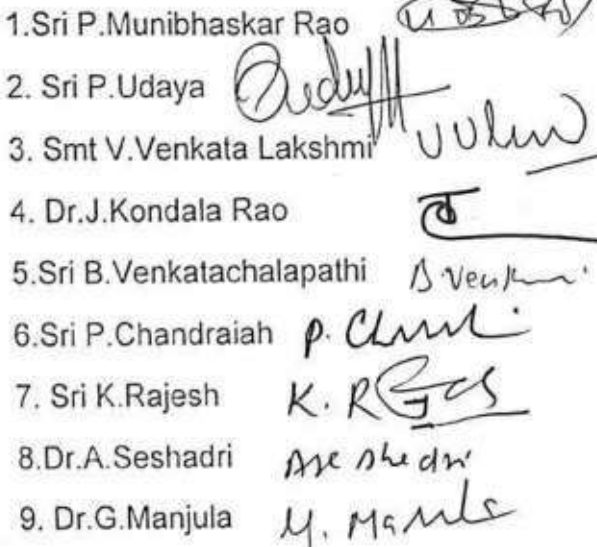 1.Sri P.Munibhaskar Rao
2. Sri P.Udaya
3. Smt V.Venkata Lakshmi
4. Dr.J.Kondala Rao
5.Sri B.Venkatachalapathi
6.Sri P.Chandraiah P.
7. Sri K.Rajesh K.
8.Dr.A.Seshadri
9. Dr.G.Manjula